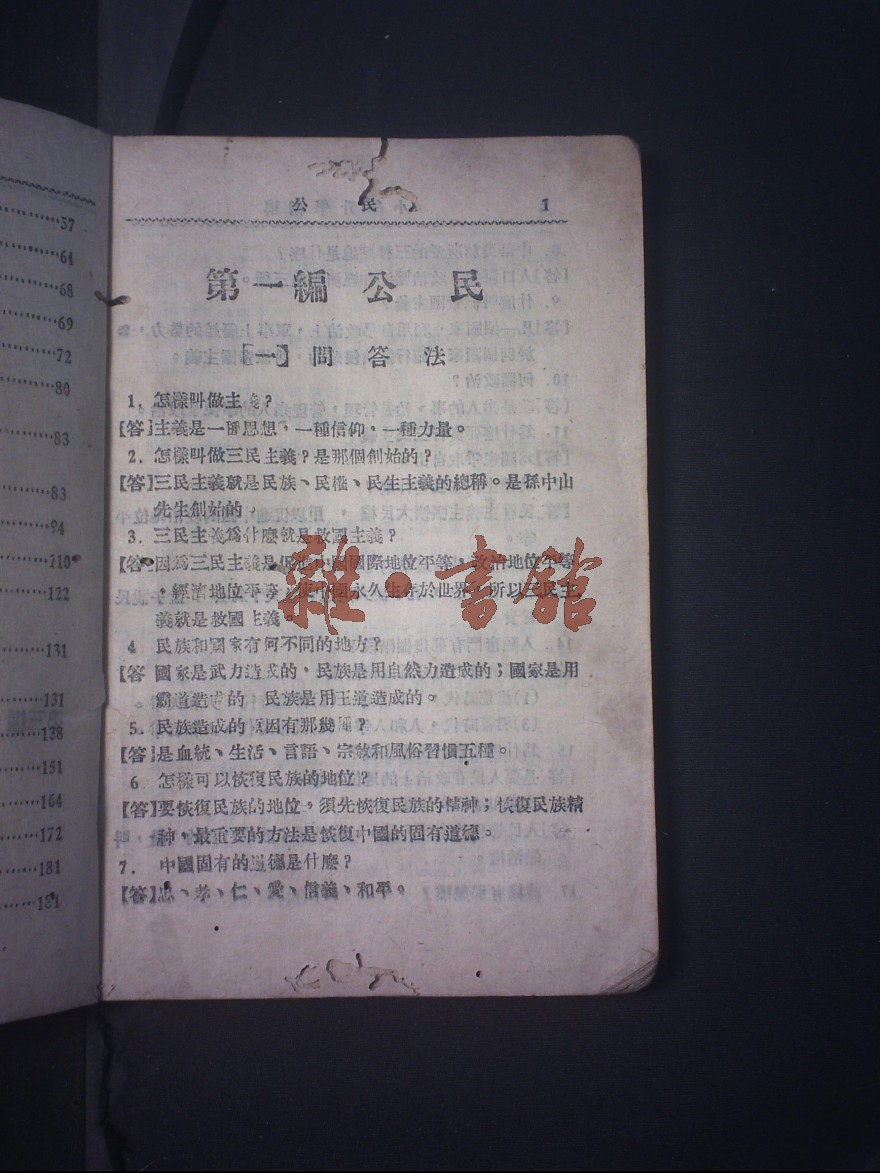 57
64
68
69
72
80
83
83
94
110
122
131
131
138
151
164
172
181
181
公 民 1
第一編 公 民
〔一〕 問 答 法
1. 怎樣叫做主義?
【答】主義是一種思想,一種信仰,一種力量。
2. 怎樣叫做三民主義?是那個創始的?
【答】三民主義就是民族、民權、民生主義的總稱。是孫中山
先生創始的。
3. 三民主義爲什麼就是救國主義?
【答】因爲三民主義是促進中國國際地位平等,政治地位平等
,經濟地位平等,使中國永久生存於世界,所以三民主
義就是救國主義。
4 民族和國家有何不同的地方?
【答 國家是武力造成的,民族是用自然力造成的;國家是用
霸道造成的 民族是用王道造成的。
5. 民族造成的原因有那幾種?
【答】是血統、生活、言語、宗教和風俗習慣五種。
6 怎樣可以恢復民族的地位?
【答】要恢復民族的地位,須先恢復民族的精神;恢復民族精
神,最重要的方法是恢復中國的固有道德。
7. 中國固有的道德是什麼?
【答】忠、孝、仁、愛、信義、和平。
雜·書館